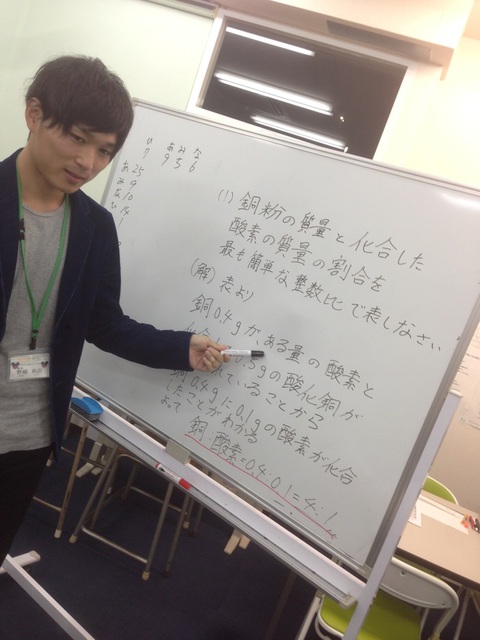 ひ あ み な
7 9 5 6
あ25
み9
な10
ひ14
(1) 銅粉の質量と化合した
酸素の質量の割合を
最も簡単な整数比で表しなさい
(解) 表より
銅0.4gが、ある量の酸素と
5gの酸化銅が
ていることから
0.4gに0.1gの酸素が化合
したことがわかる
よって
銅:酸素=0.4:0.1=4:1